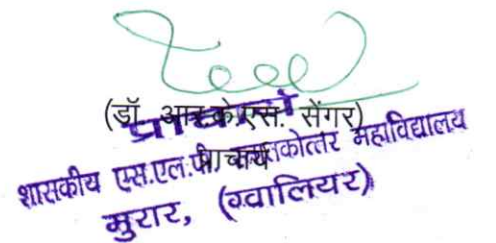 (डॉ. आर.के.एस. सेंगर)
प्राचार्य
प्राचार्य
शासकीय एस.एल.पी. स्नातकोत्तर महाविद्यालय
मुरार, (ग्वालियर)